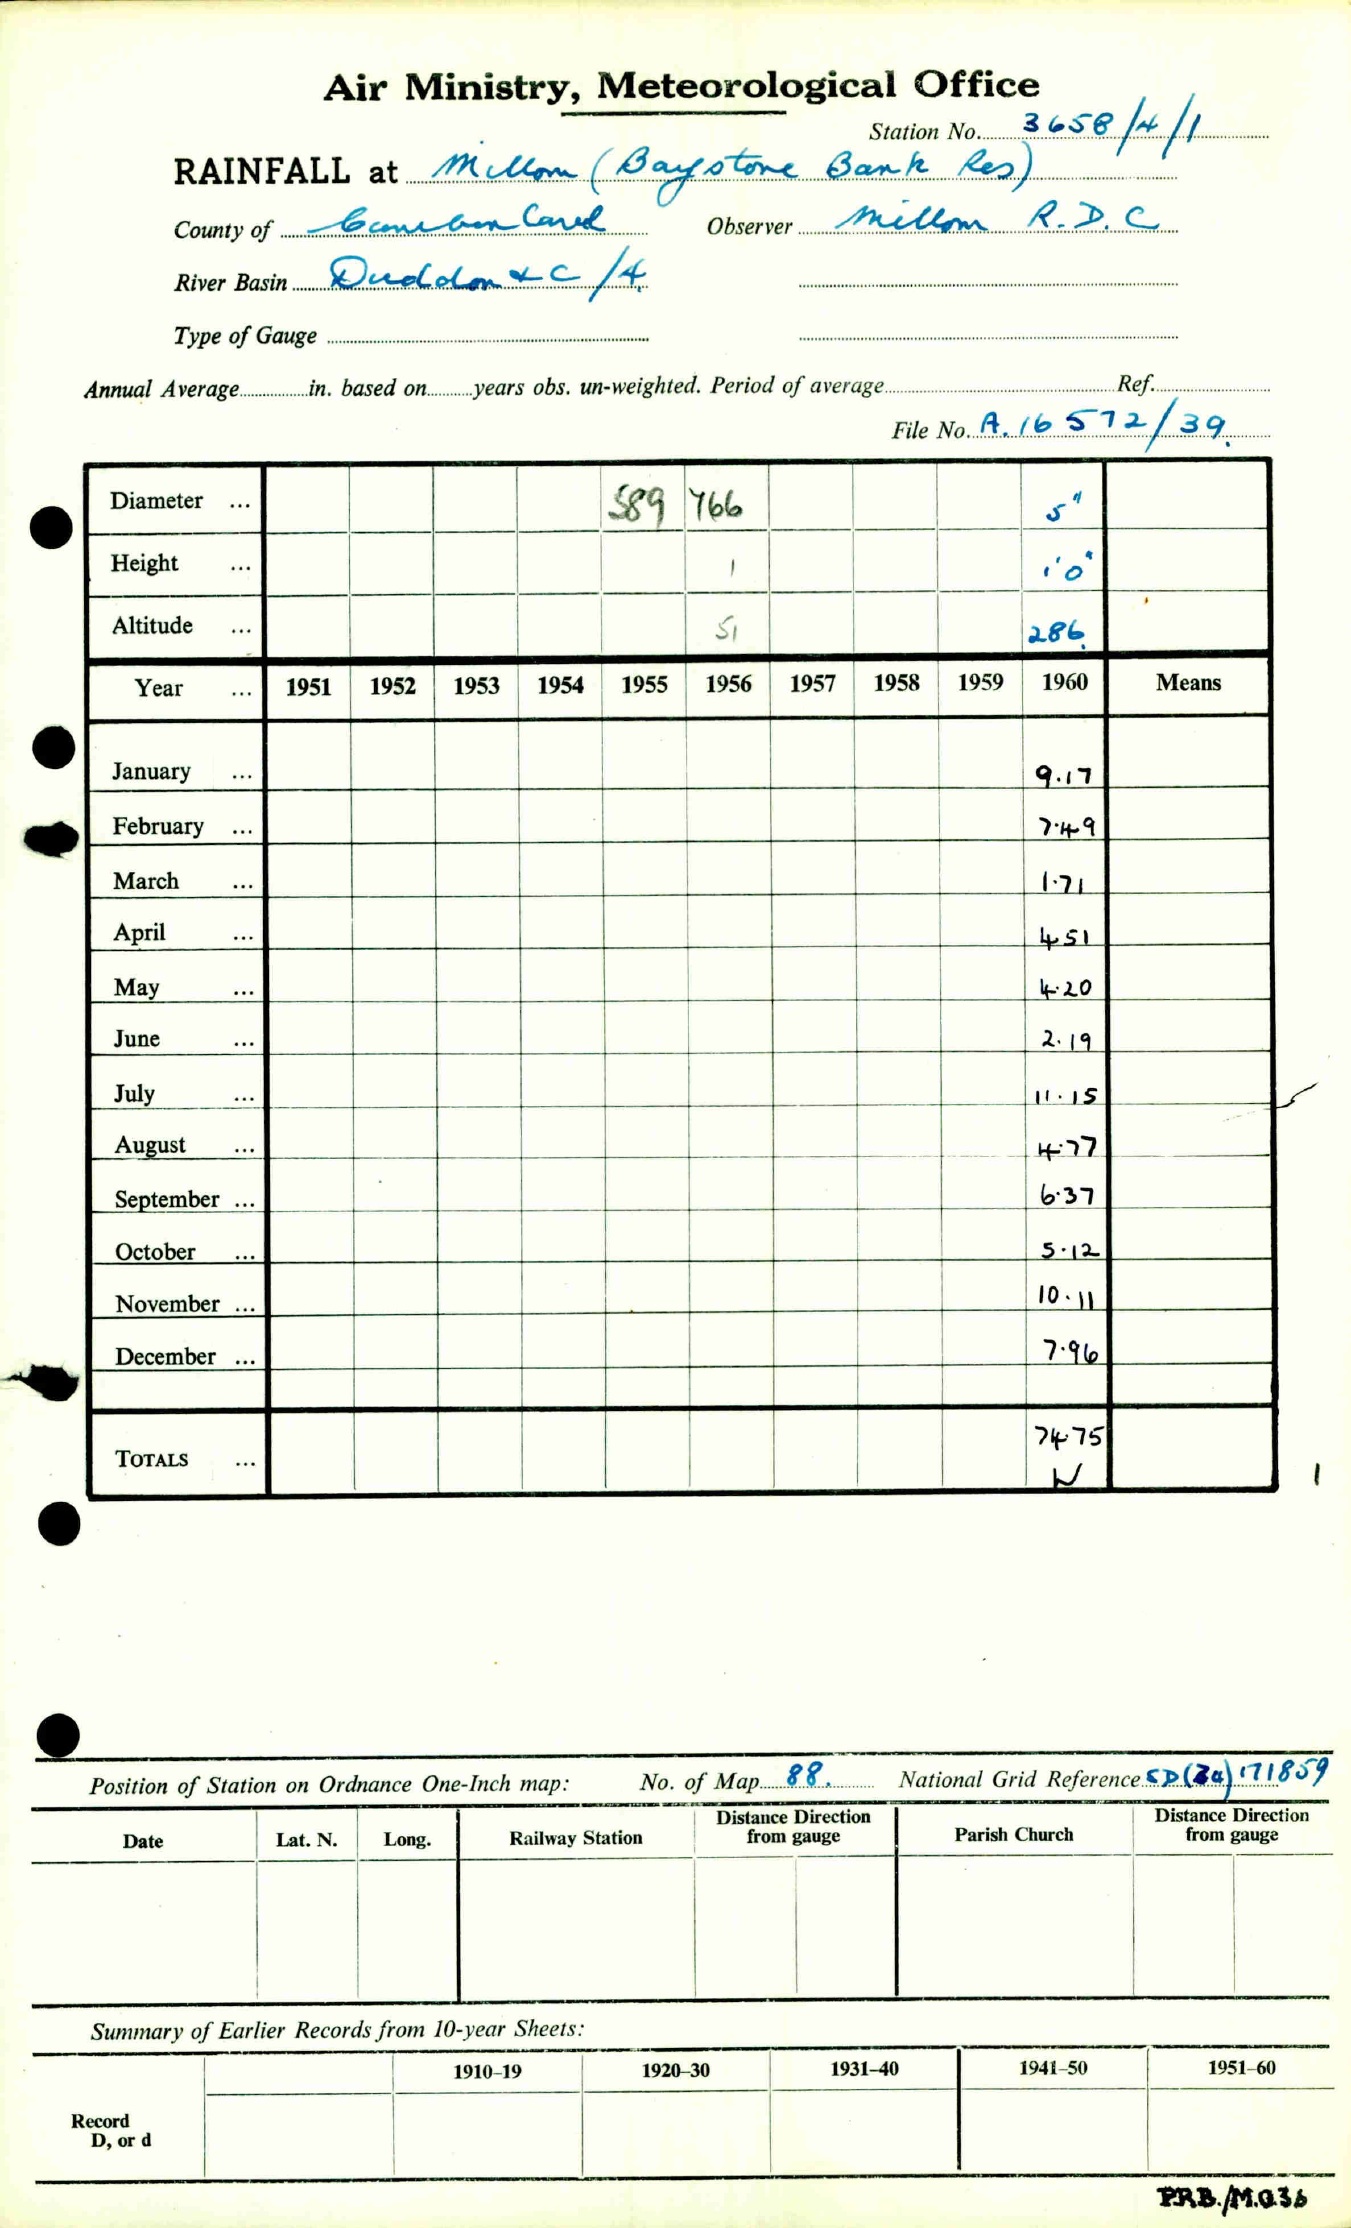 Air Ministry, Meteorological Office
Station No. 3658/4/1
RAINFALL at Millom (Baystone Bank Res)
County of Cumberland Observer Millom R.D.C
River Basin Duddon & C /4.
Type of Gauge
Annual Average in. based on years obs. un-weighted. Period of average Ref.
File No. A.16572/39.
Diameter ... 589 766 5"
Height ... 1 1'0"
Altitude ... 51 286.
Year ... 1951 1952 1953 1954 1955 1956 1957 1958 1959 1960 Means
January ... 9.17
February ... 7.49
March ... 1.71
April ... 4.51
May ... 4.20
June ... 2.19
July ... 11.15
August ... 4.77
September ... 6.37
October ... 5.12
November ... 10.11
December ... 7.96
TOTALS ... 74.75
Position of Station on Ordnance One-Inch map: No. of Map 88. National Grid Reference SD(34)171859
Date Lat. N. Long. Railway Station Distance Direction from gauge Parish Church Distance Direction from gauge
Summary of Earlier Records from 10-year Sheets:
1910–19 1920–30 1931–40 1941–50 1951–60
Record
D, or d
P.R.B./M.O.36